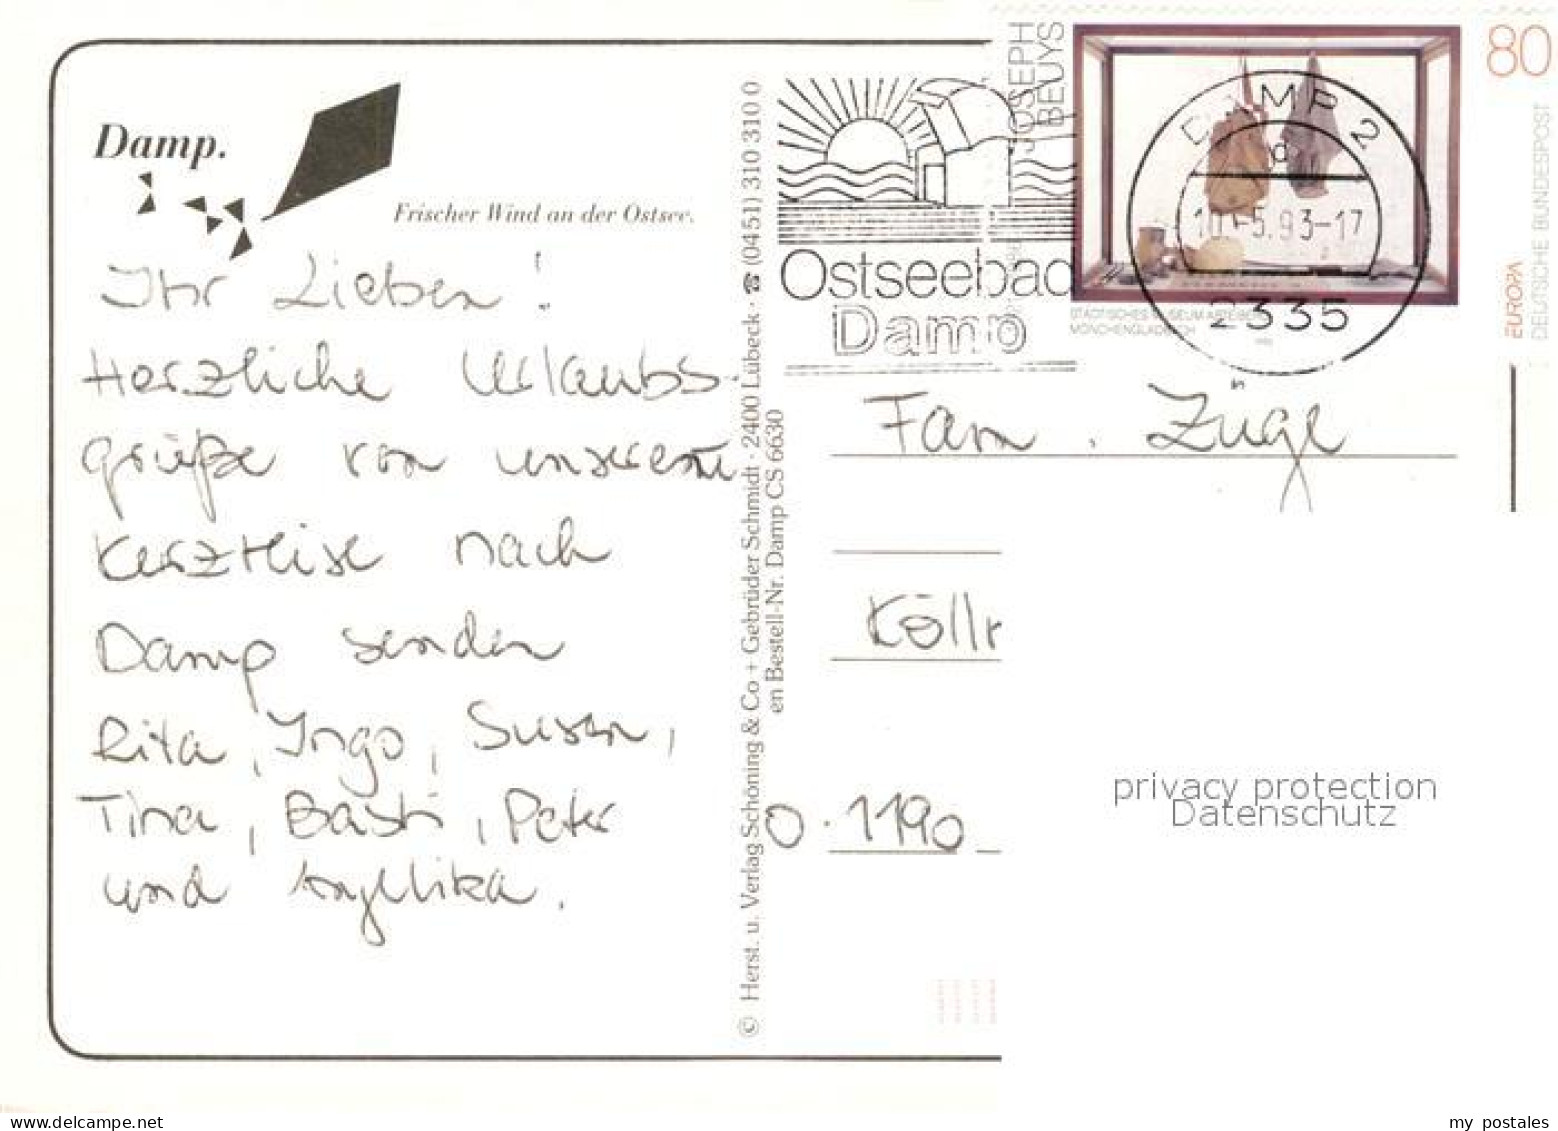 Damp.
Frischer Wind an der Ostsee.
Ihr Lieben!
Herzliche Urlaubs-
grüße von unserem
Kurztrise nach
Damp senden
Rita, Ingo, Susan,
Tina, Basti, Peter
und Angelika.
© Herst. u. Verlag Schöning & Co + Gebrüder Schmidt · 2400 Lübeck · ☎ (0451) 310 310 0
en Bestell-Nr. Damp CS 6630
Ostseebad
Damp
JOSEPH
BEUYS
80
DEUTSCHE BUNDESPOST
EUROPA
STÄDTISCHES MUSEUM ABTEIBERG
MÖNCHENGLADBACH
DAMP 2
d
10.-5.93-17
2335
Fam. Züge
Kölln
O.1190
privacy protection
Datenschutz
my postales